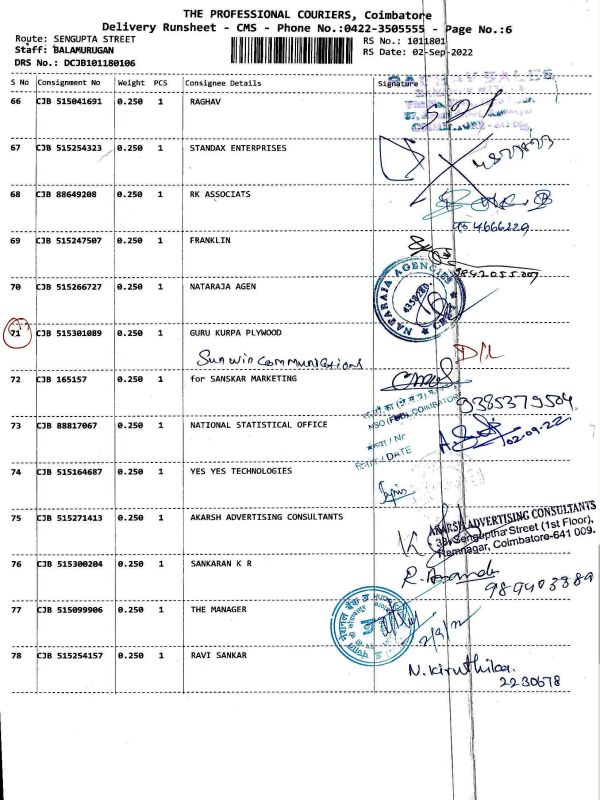 THE PROFESSIONAL COURIERS, Coimbatore
Delivery Runsheet - CMS - Phone No.:0422-3505555 - Page No.:6
Route: SENGUPTA STREET
RS No.: 1011801
Staff: BALAMURUGAN
RS Date: 02-Sep-2022
DRS No.: DCJB101180106
S No Consignment No Weight PCS Consignee Details Signature
66 CJB 515041691 0.250 1 RAGHAV
67 CJB 515254323 0.250 1 STANDAX ENTERPRISES
68 CJB 88649208 0.250 1 RK ASSOCIATS
954666229
69 CJB 515247507 0.250 1 FRANKLIN
9842055207
70 CJB 515266727 0.250 1 NATARAJA AGEN
NATARAJA AGENCIES
4359280
71 CJB 515301089 0.250 1 GURU KURPA PLYWOOD
D/L
Sun win Communications
72 CJB 165157 0.250 1 for SANSKAR MARKETING
9385379504
73 CJB 88817067 0.250 1 NATIONAL STATISTICAL OFFICE
COIMBATORE
/ No
/ DATE
02-09-22
74 CJB 515164687 0.250 1 YES YES TECHNOLOGIES
75 CJB 515271413 0.250 1 AKARSH ADVERTISING CONSULTANTS
AKARSH ADVERTISING CONSULTANTS
38, Senguptha Street (1st Floor),
Ramnagar, Coimbatore-641 009.
76 CJB 515300204 0.250 1 SANKARAN K R
R. Ananda
989403889
77 CJB 515099906 0.250 1 THE MANAGER
2/9/22
78 CJB 515254157 0.250 1 RAVI SANKAR
N. Kiruthika.
2230678